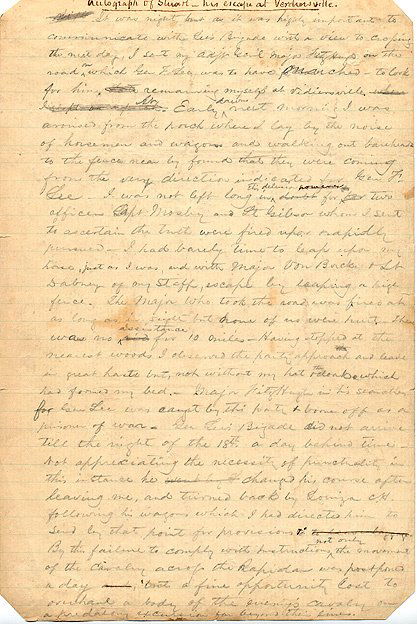 Autograph of Stuart – his escape at Verdiersville.
It was night, but as it was highly important to
communicate with Lee's Brigade with a view to crossing
the next day, I sent my Adjt Genl Major Fitzhugh on the
road, on which Gen F. Lee was to have marched – to look
for him, remaining myself at Verdiersville
Early next morning I was
aroused from the porch where I lay by the noise
of horsemen and wagons and walking out bareheaded
to the fence near by found that they were coming
from the very direction indicated for Gen F.
Lee – I was not left long in the delusion for two
officers Capt Mosby and Lt Gibson whom I sent
to ascertain the truth were fired upon & rapidly
pursued – I had barely time to leap upon my
horse, just as I was, and with Major Von Borcke & Lt
Dabney of my Staff, escape by leaping a high
fence. The Major who took the road was fired at
as long as in sight but none of us were hurt. There
was no assistance for 10 miles – Having stopped at the
nearest woods I observed the party approach and leave
in great haste but not without my hat & the cloak which
had formed my bed – Major Fitzhugh in his search
for Gen Lee was caught by this party & borne off as a
prisoner of war – Gen Lee's Brigade did not arrive
till the night of the 18th a day behind time –
Not appreciating the necessity of punctuality in
this instance he changed his course after
leaving me, and turned back by Louiza CH
following his wagons which I had directed him to
send by that point for provisions &c
By this failure to comply with instructions not only the movement
of the Cavalry across the Rapidan was postponed
a day but a fine opportunity lost to
overhaul a body of the enemy's cavalry on
a predatory excursion far beyond their lines.